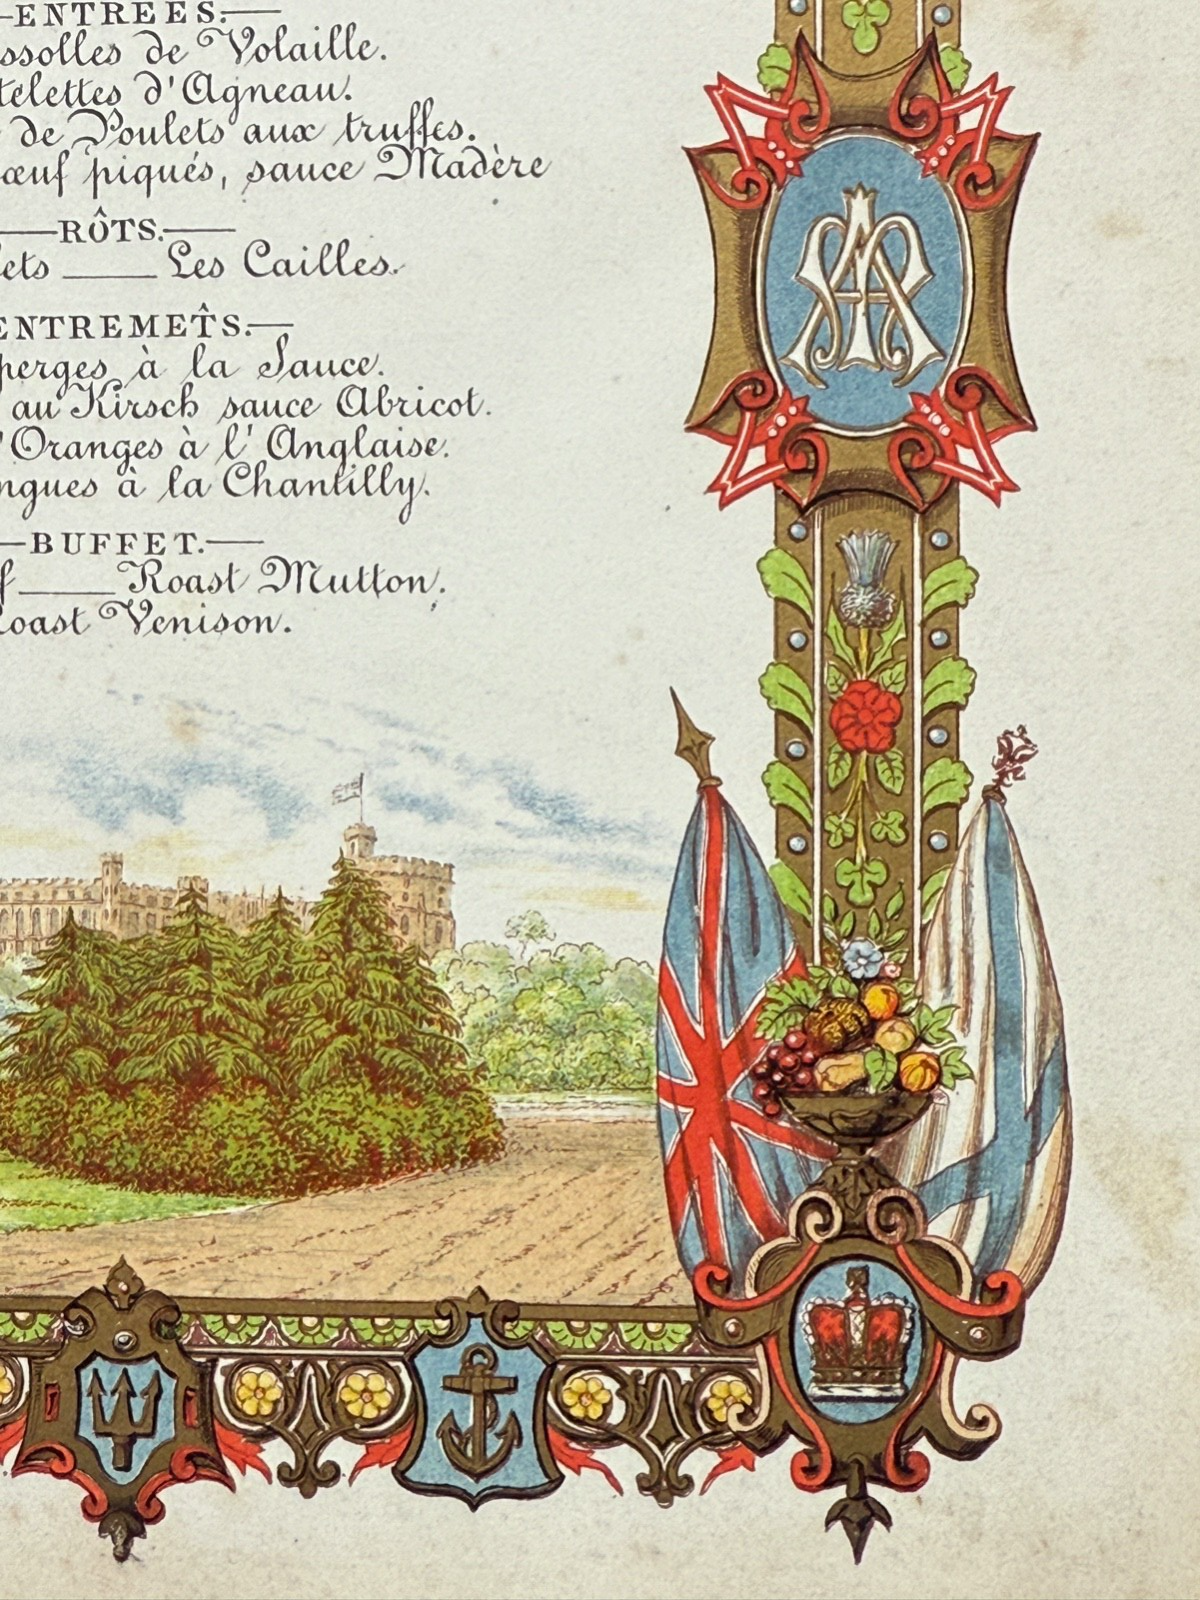 ENTRÉES.
ssolles de Volaille.
telettes d'Agneau.
de Poulets aux truffes.
œuf piqués, sauce Madère
RÔTS.
lets Les Cailles.
ENTREMETS.
perges à la Sauce.
au Kirsch sauce Abricot.
d'Oranges à l'Anglaise.
ngues à la Chantilly.
BUFFET.
f Roast Mutton.
Roast Venison.